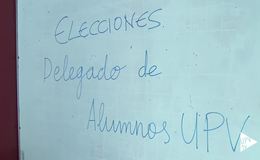 ELECCIONES.
Delegado de
Alumnos UPV